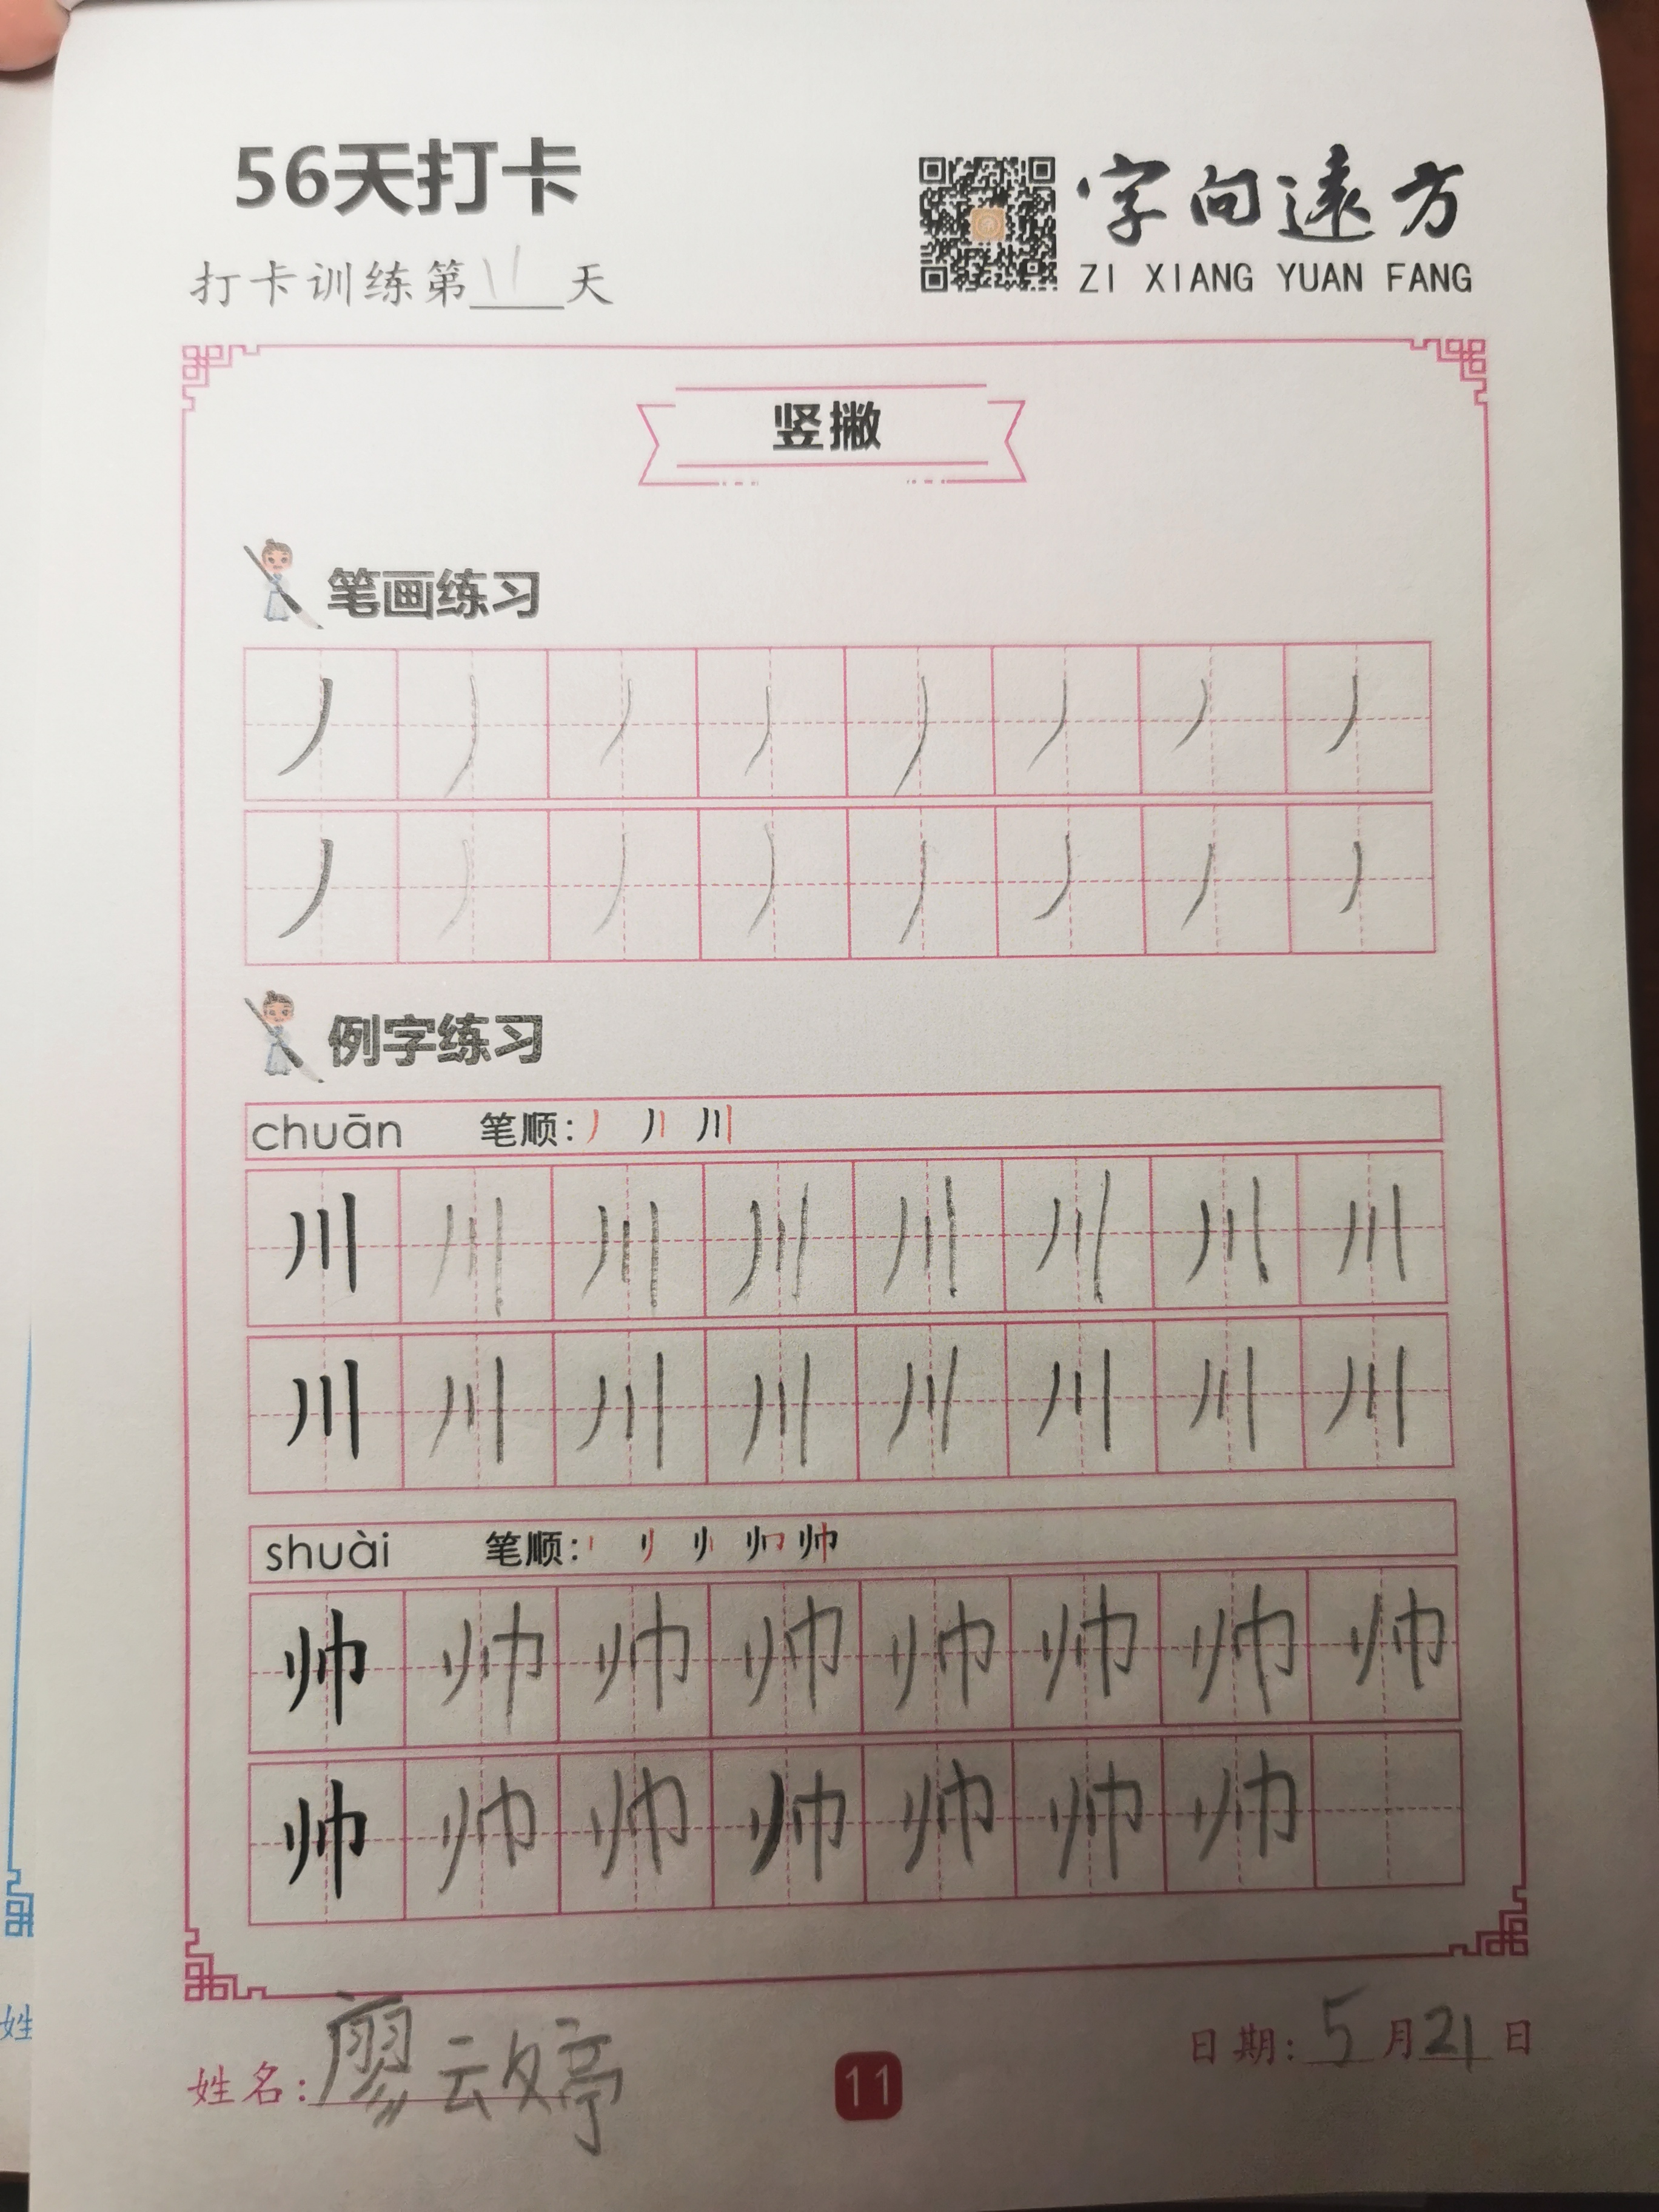 56天打卡
字向遠方
打卡训练第11天
ZI XIANG YUAN FANG
竖撇
笔画练习
丿 丿 丿 丿 丿 丿 丿 丿
丿 丿 丿 丿 丿 丿 丿 丿
例字练习
chuān 笔顺: 丿 丿丨 川
川 川 川 川 川 川 川 川
川 川 川 川 川 川 川 川
shuài 笔顺:
帅 帅 帅 帅 帅 帅 帅 帅
帅 帅 帅 帅 帅 帅 帅
姓
姓名: 廖云婷
11
日期: 5月21日